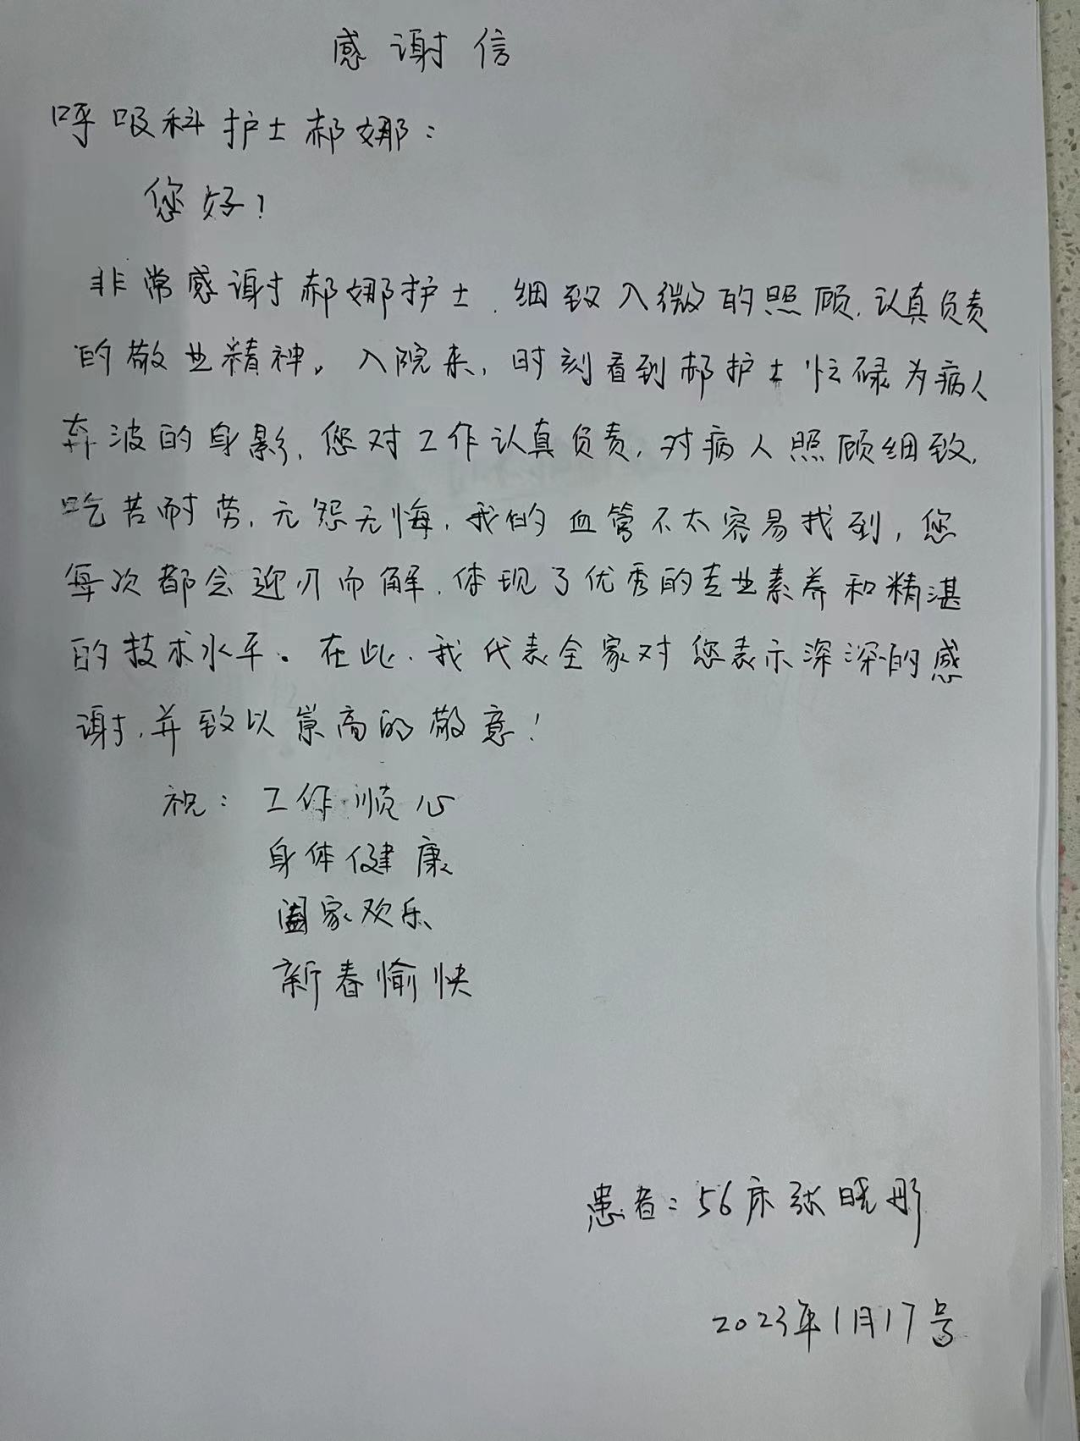 感谢信
呼吸科护士郝娜：
您好！
非常感谢郝娜护士，细致入微的照顾，认真负责
的敬业精神。入院来，时刻看到郝护士忙碌为病人
奔波的身影，您对工作认真负责，对病人照顾细致，
吃苦耐劳，无怨无悔，我的血管不太容易找到，您
每次都会迎刃而解，体现了优秀的专业素养和精湛
的技术水平。在此，我代表全家对您表示深深的感
谢，并致以崇高的敬意！
祝：工作顺心
身体健康
阖家欢乐
新春愉快
患者：56床张晓彤
2023年1月17号